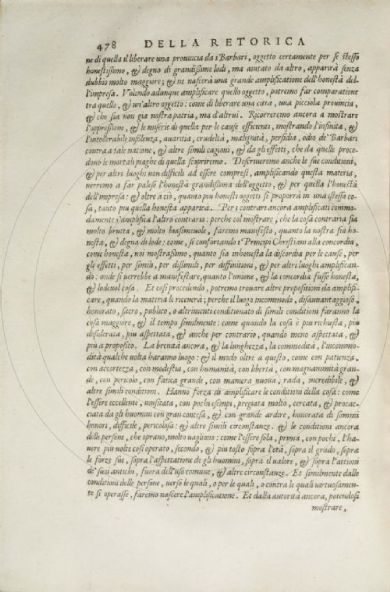 478 DELLA RETORICA
ne di quella il liberare una prouincia da i Barbari, oggetto certamente per se stesso
honestissimo, & degno di grandissime lodi, ma aiutato da altro, apparirà senza
dubbio molto maggiore; & ne nascerà una grande amplificatione dell'honestà del-
l'impresa. Volendo adunque amplificare quello oggetto, potremo far comparatione
tra quello, & un'altro oggetto: come di liberare una casa, una picciola prouincia,
& che sia non già nostra patria, ma d'altrui. Ricorreremo ancora à mostrare
l'oppressione, & le miserie di quella per le cause efficienti, mostrando l'infinita, &
l'intolerabile insolenza, auaritia, crudeltà, malignità, perfidia, odio de' Barbari
contra a tale natione, & altre simili cagioni, & da gli effetti, che da quelle proce-
dono le mortali piaghe di quella scopriremo. Discorreremo anche le sue conditioni,
& per altri luoghi non difficili ad essere compresi, amplificando questa materia,
verremo a far palese l'honestà grandissima dell'oggetto, & per quella l'honestà
dell'impresa: & oltre a ciò, quanto piu honesti oggetti si proporrà in una istessa co-
sa, tanto piu quella honesta apparirà. Per i contrari ancora amplificati comune-
damente s'amplifica l'altro contrario: perche col mostrare, che la cosa contraria sia
molto brutta, & molto biasimeuole, faremo manifesto, quanto la nostra sia ho-
nesta, & degna di lode: come, si confortando i Principi Christiani alla concordia,
come honesta, noi mostrassimo, quanto sia inhonesta la discordia per le cause, per
gli effetti, per simili, per dissimili, per diffinitioni, & per altri luoghi amplifican-
do: onde si uerrebbe a manifestare, quanto l'unione, & la concordia fusse honesta,
& lodeuol cosa. Et così procedendo, potremo trouare altre propositioni da amplifi-
care, quando la materia le riceuerà; perche il luogo incommodo, disauantaggioso,
honorato, sacro, publico, o altrimenti conditionato di simili conditioni faranno la
cosa maggiore, & il tempo similmente: come quando la cosa è piu richiesta, piu
desiderata, piu aspettata, & anche per contrario, quando meno aspettata, &
piu a proposito. La breuità ancora, & la lunghezza, la commodità, l'incommo-
dità qualche uolta haranno luogo: & il modo oltre a questo, come con patienza,
con accortezza, con modestia, con humanità, con libertà, con magnanimità gran-
de, con pericolo, con fatica grande, con maniera nuoua, rada, incredibile, &
altre simili conditioni. Hanno forza di amplificare le conditioni della cosa: come
l'essere eccellente, inusitata, con pochi esempi, pregiata molto, cercata, & procac-
ciata da gli huomini con gran contesa, & con grande ardire, honorata di sommi
honori, difficile, pericolosa: & altre simili circonstanze. & le conditioni ancora
delle persone, che oprano, molto uagliono: come l'essere sola, prima, con pochi, l'ha-
uere piu uolte così operato, secondo, & piu tosto sopra l'età, sopra il grado, sopra
le forze sue, sopra l'aspettatione de gli huomini, sopra il ualore, & sopra l'attioni
de' suoi antichi, fuora dell'uso comune, & altre circonstanze. Et similmente dalle
conditioni delle persone, uerso le quali, o per le quali, o contra le quali uirtuosamen-
te si operasse, faremo nascere l'amplificatione. Et dalla autorità ancora, potendosi
mostrare,